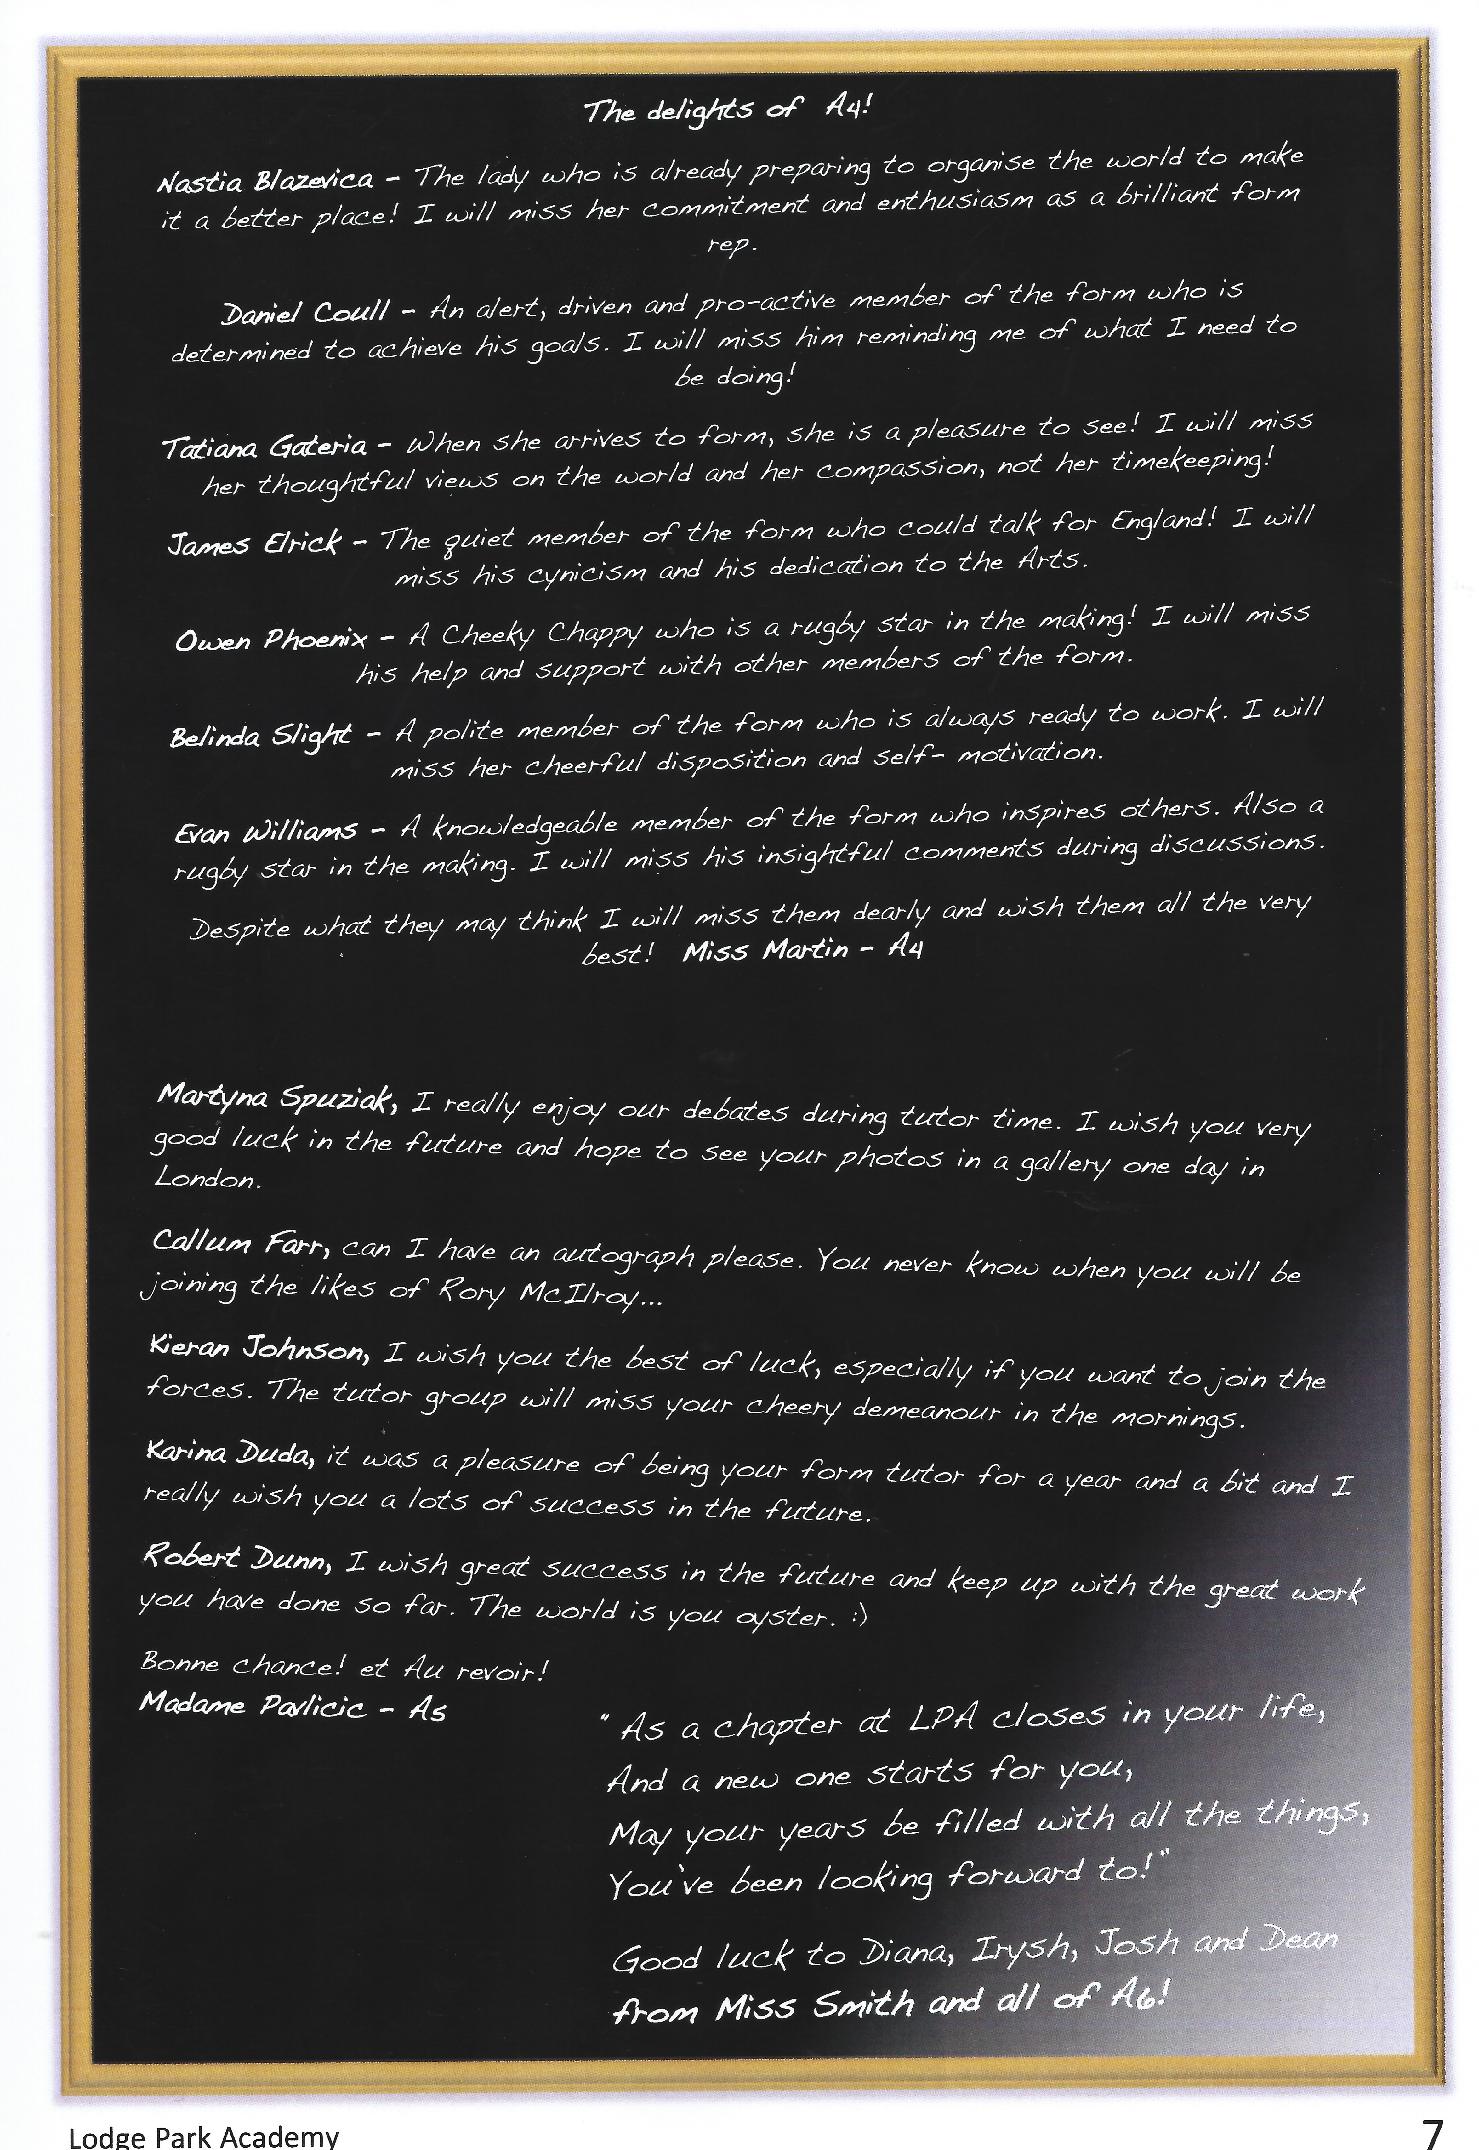 The delights of A4!
Nastia Blazevica - The lady who is already preparing to organise the world to make
it a better place! I will miss her commitment and enthusiasm as a brilliant form
rep.
Daniel Coull - An alert, driven and pro-active member of the form who is
determined to achieve his goals. I will miss him reminding me of what I need to
be doing!
Tatiana Gateria - When she arrives to form, she is a pleasure to see! I will miss
her thoughtful views on the world and her compassion, not her timekeeping!
James Elrick - The quiet member of the form who could talk for England! I will
miss his cynicism and his dedication to the Arts.
Owen Phoenix - A Cheeky Chappy who is a rugby star in the making! I will miss
his help and support with other members of the form.
Belinda Slight - A polite member of the form who is always ready to work. I will
miss her cheerful disposition and self- motivation.
Evan Williams - A knowledgeable member of the form who inspires others. Also a
rugby star in the making. I will miss his insightful comments during discussions.
Despite what they may think I will miss them dearly and wish them all the very
best! Miss Martin - A4
Martyna Spuziak, I really enjoy our debates during tutor time. I wish you very
good luck in the future and hope to see your photos in a gallery one day in
London.
Callum Farr, can I have an autograph please. You never know when you will be
joining the likes of Rory McIlroy...
Kieran Johnson, I wish you the best of luck, especially if you want to join the
forces. The tutor group will miss your cheery demeanour in the mornings.
Karina Duda, it was a pleasure of being your form tutor for a year and a bit and I
really wish you a lots of success in the future.
Robert Dunn, I wish great success in the future and keep up with the great work
you have done so far. The world is you oyster. :)
Bonne chance! et Au revoir!
Madame Pavlicic - A5
" As a chapter at LPA closes in your life,
And a new one starts for you,
May your years be filled with all the things,
You've been looking forward to!"
Good luck to Diana, Irysh, Josh and Dean
from Miss Smith and all of A6!
Lodge Park Academy
7